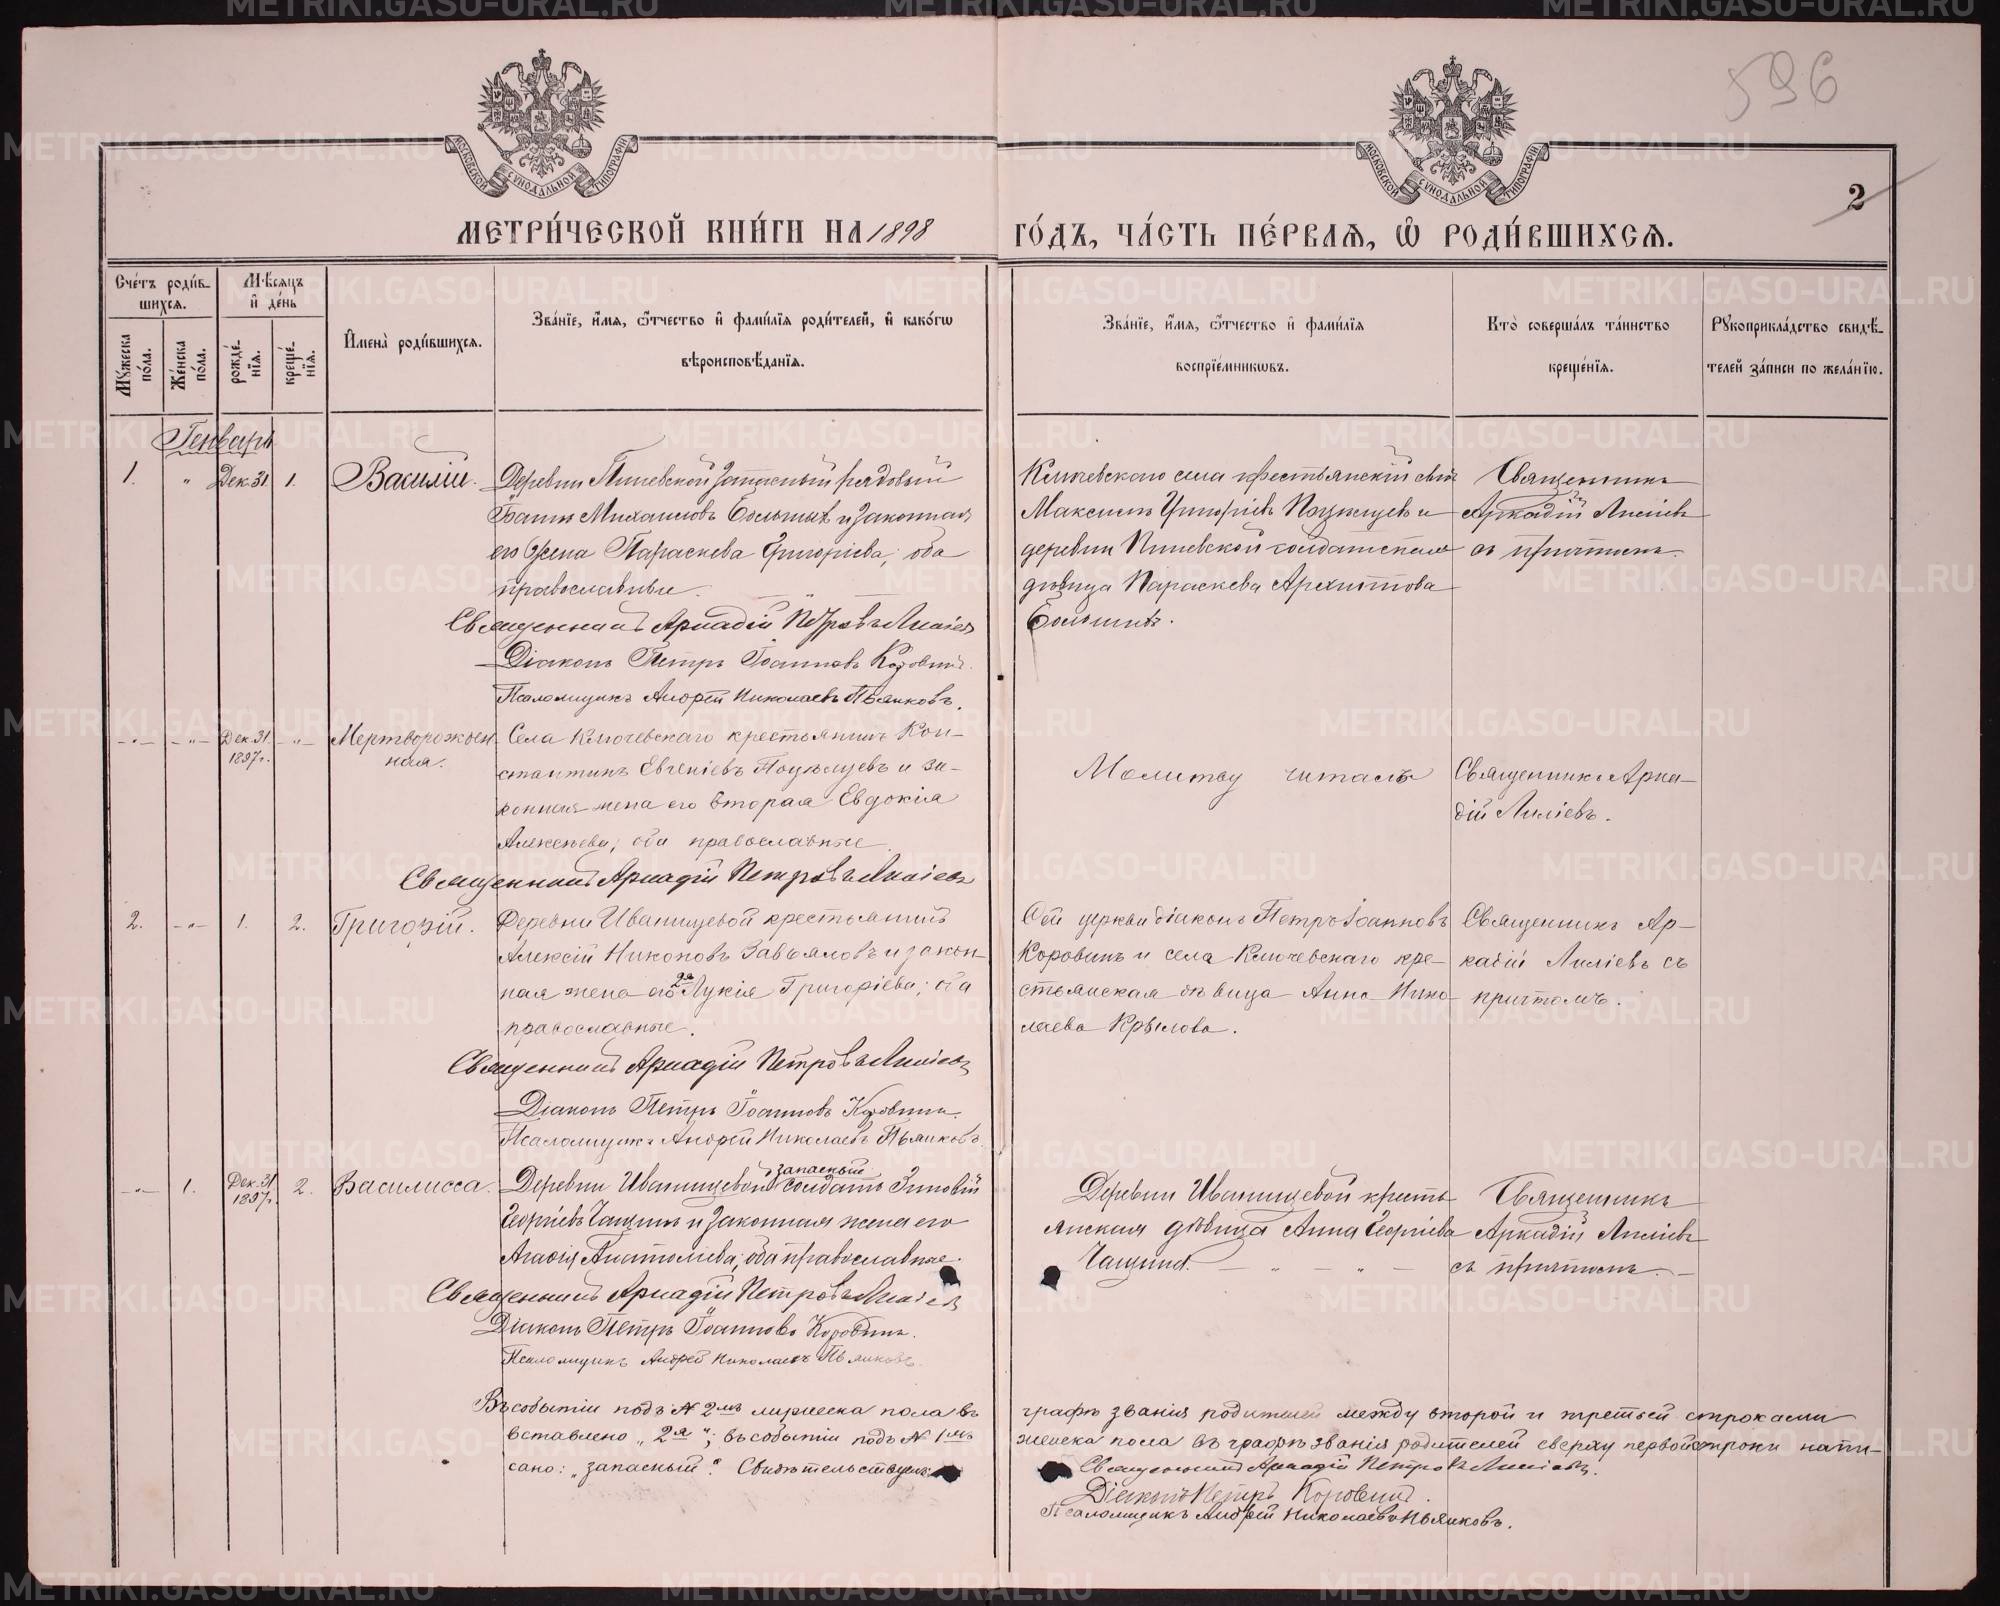 596
МОСКОВСКОЙ СУНОДАЛЬНОЙ ТИПОГРАФІИ
МОСКОВСКОЙ СУНОДАЛЬНОЙ ТИПОГРАФІИ
2
МЕТРИ́ЧЕСКОЙ КНИ́ГИ НА 1898 ГО́ДЪ, ЧА́СТЬ ПЕ́РВАѦ, Ѡ РОДИ́ВШИХСѦ.
Сче́тъ роди́в-
шихсѧ.
Мꙋ́жеска по́ла.
Же́нска по́ла.
Мѣ́сѧцъ
и҆ де́нь
рожде́-
нїѧ.
креще́-
нїѧ.
И҆мена̀ роди́вшихсѧ.
Зва́нїе, и҆́мѧ, ѻ҆́тчество и҆ фами́лїѧ роди́телей, и҆ како́гѡ
вѣроисповѣ́данїѧ.
Зва́нїе, и҆́мѧ, ѻ҆́тчество и҆ фами́лїѧ
воспрїе́мникѡвъ.
Кто̀ соверша́лъ та́инство
креще́нїѧ.
Рꙋкоприкла́дство свидѣ́-
телей за́писи по жела́нїю.
Генварь
1. " Дек. 31. 1. Василій.
Деревни Пиневской запасный рядовый
Іоаннъ Михаиловъ Большихъ и законная
его жена Параскева Григоріева, оба
православные.
Священникъ Аркадій Петровъ Лиліевъ
Діаконъ Петръ Іоанновъ Коровинъ.
Псаломщикъ Андрей Николаевъ Пьянковъ.
Ключевскаго села крестьянскій сынъ
Максимъ Поцѣлуевъ и
деревни Пиневской солдатская
дѣвица Параскева Архиппова
Большихъ.
Священникъ
Аркадій Лиліевъ
съ причтомъ.
-"- -"- Дек. 31. 1897 г. -"- Мертворожден-
ная.
Села Ключевскаго крестьянинъ Кон-
стантинъ Евгеніевъ Поцѣлуевъ и за-
конная жена его вторая Евдокія
Алексѣева, оба православные.
Священникъ Аркадій Петровъ Лиліевъ
Молитву читалъ
Священникъ Арка-
дій Лиліевъ.
2. -"- 1. 2. Григорій.
Деревни Иванищевой крестьянинъ
Алексій Никоновъ Завьяловъ и закон-
ная жена его 2я Лукія Григоріева; оба
православные.
Священникъ Аркадій Петровъ Лиліевъ
Діаконъ Петръ Іоанновъ Коровинъ.
Псаломщикъ Андрей Николаевъ Пьянковъ.
Сей церкви діаконъ Петръ Іоанновъ
Коровинъ и села Ключевскаго кре-
стьянская дѣвица Анна Нико-
лаева Крылова.
Священникъ Ар-
кадій Лиліевъ съ
причтомъ.
-"- 1. Дек. 31 1897 г. 2. Василисса.
запасный
Деревни Иванищевой солдатъ Зиновій
Георгіевъ Чащинъ и законная жена его
Агафія Анатоліева, оба православные.
Священникъ Аркадій Петровъ Лиліевъ
Діаконъ Петръ Іоанновъ Коровинъ.
Псаломщикъ Андрей Николаевъ Пьянковъ.
Деревни Иванищевой кресть-
янская дѣвица Анна Георгіева
Чащина. - " - " -
Священникъ
Аркадій Лиліевъ
съ причтомъ.
Въ событіи подъ № 2мъ мужеска пола въ графѣ званія родителей между второй и третьей строками
вставлено "2я"; въ событіи подъ № 1мъ женска пола въ графѣ званія родителей сверху первой строки напи-
сано: "запасный". Свидѣтельствуемъ:
Священникъ Аркадій Петровъ Лиліевъ.
Діаконъ Петръ Коровинъ.
Псаломщикъ Андрей Николаевъ Пьянковъ.
METRIKI.GASO-URAL.RU